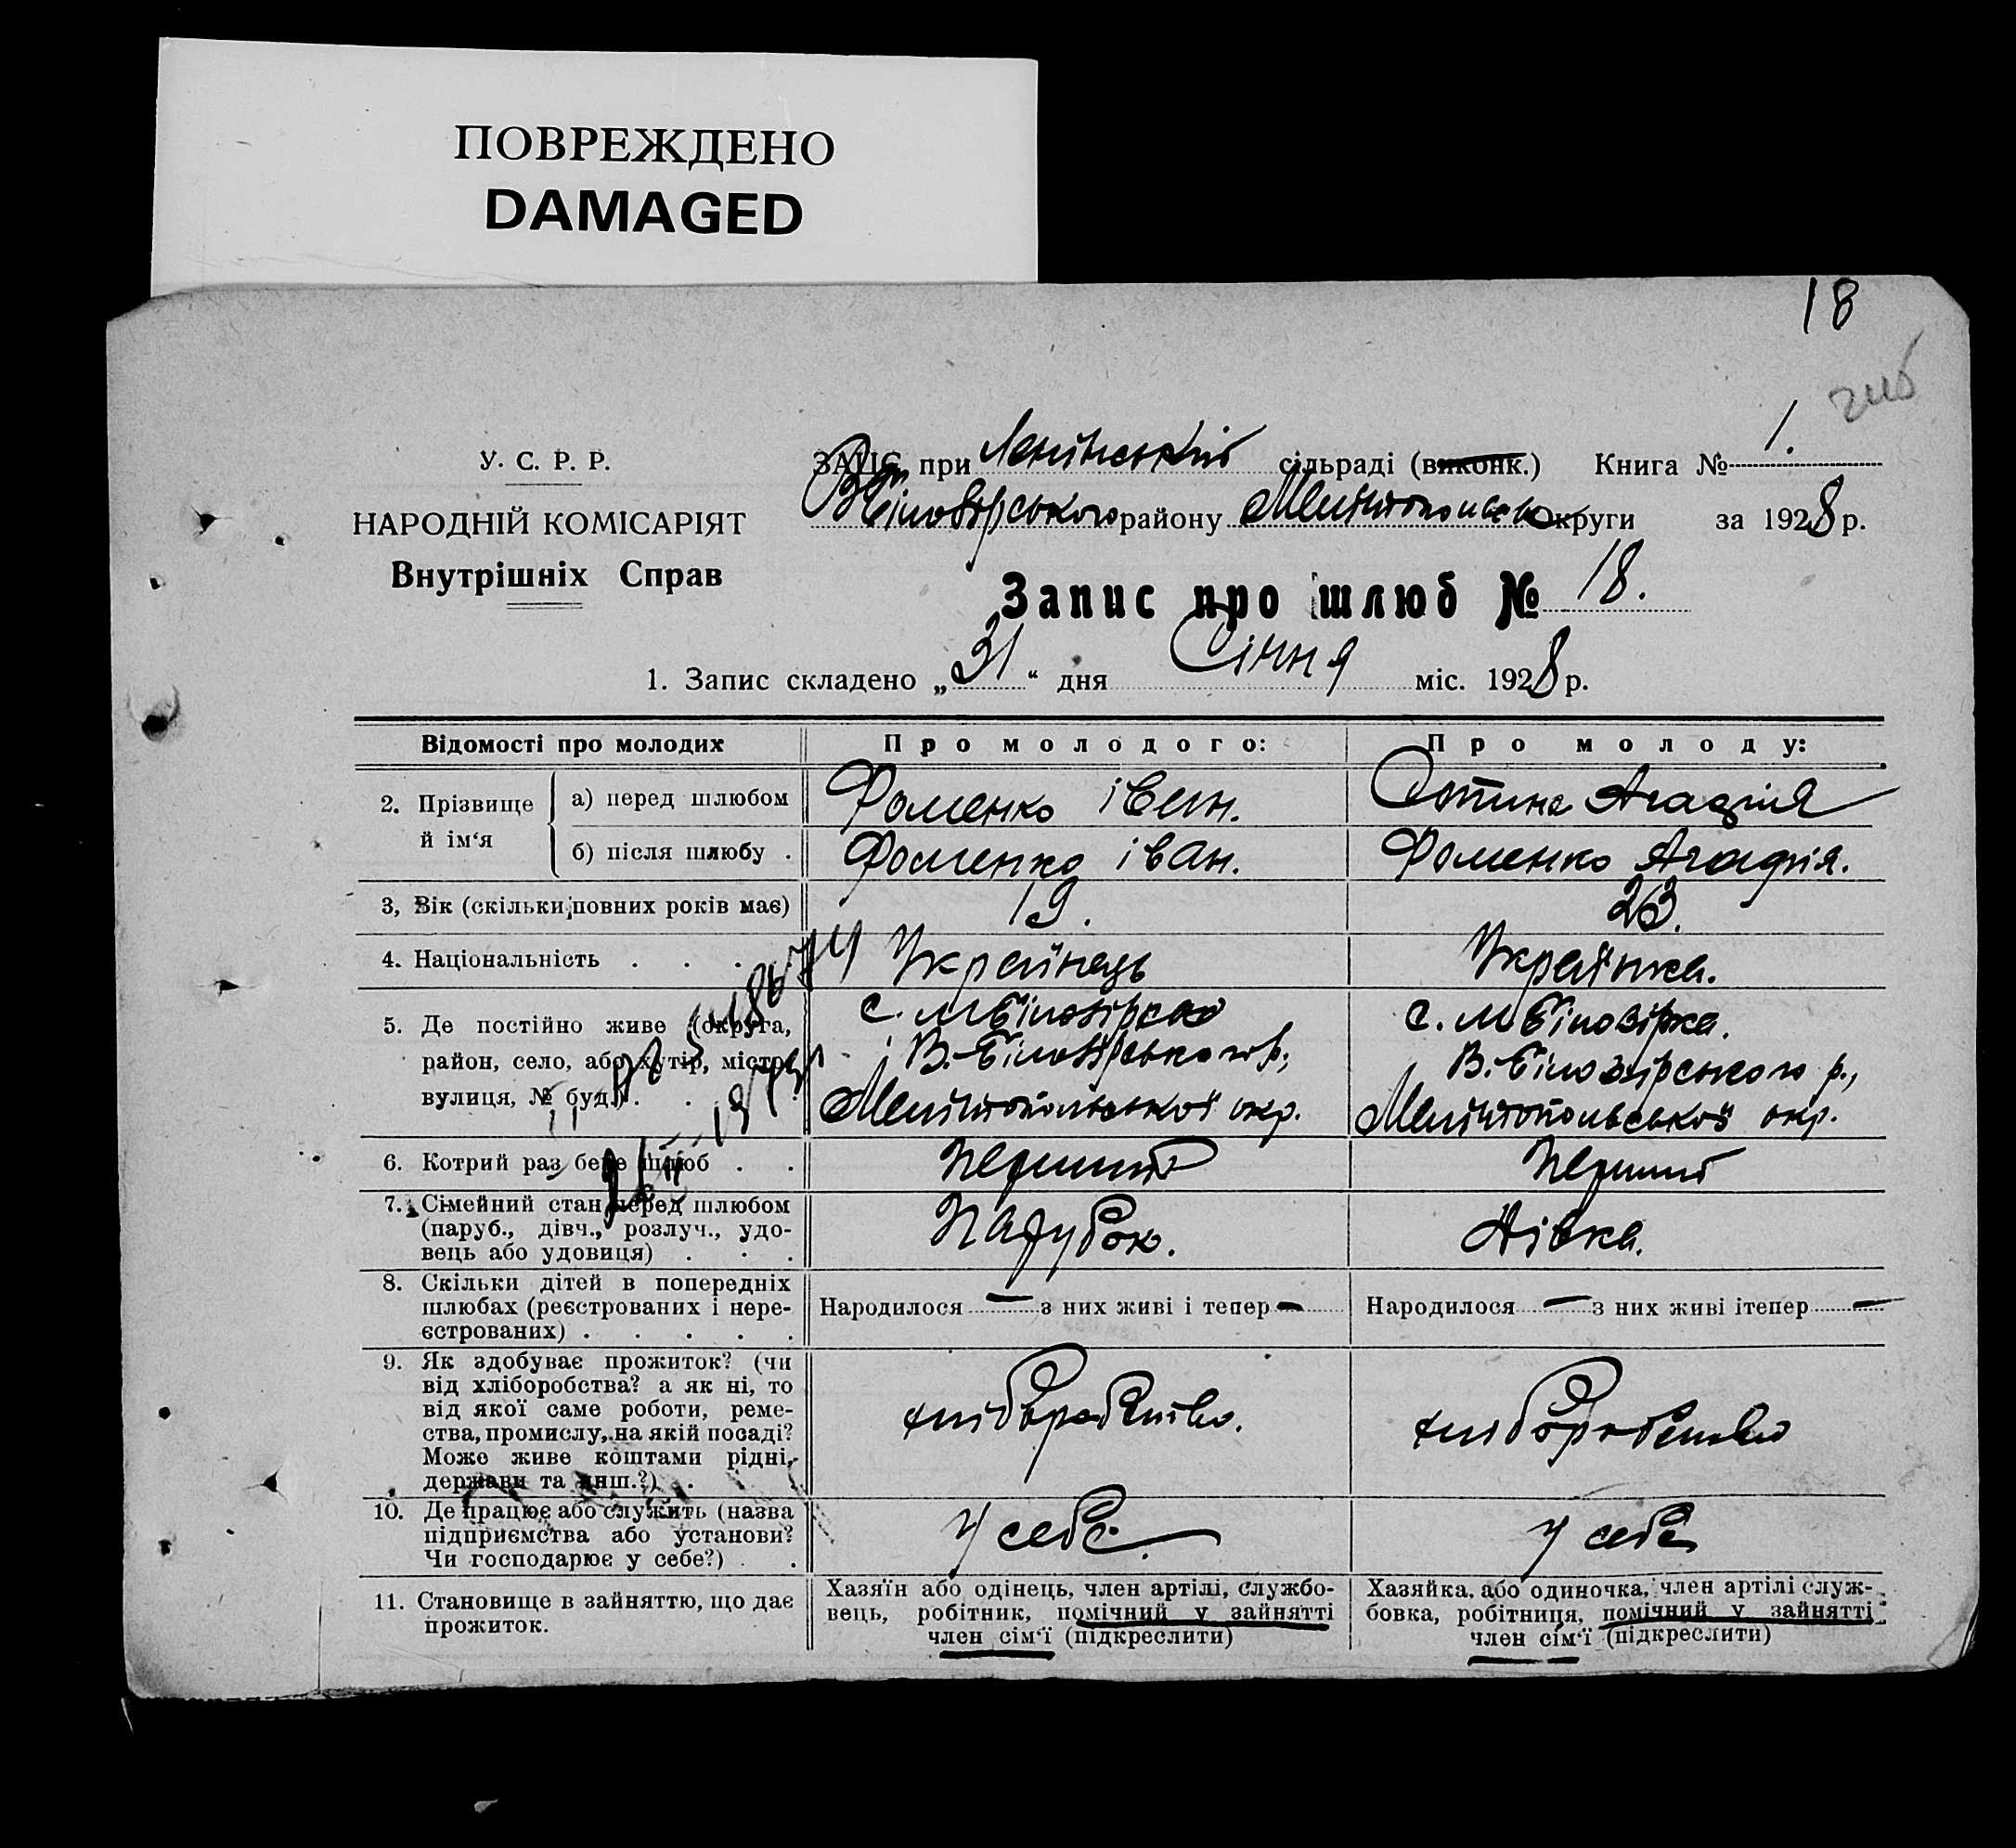 ПОВРЕЖДЕНО
DAMAGED
18
У. С. Р. Р.
НАРОДНІЙ КОМІСАРІЯТ
Внутрішніх Справ
ЗАЦС при Ленінській сільраді (виконк.) Книга № 1.
Білозірського району Мелітопольсь округи за 1928 р.
Запис про шлюб № 18.
1. Запис складено „31“ дня Січня міс. 1928 р.
Відомості про молодих
Про молодого:
Про молоду:
2. Прізвище й ім‘я
а) перед шлюбом
Фоменко іван.
Агафія
б) після шлюбу .
Фоменко іван.
Фоменко Агафія.
3, Вік (скільки повних років має)
19.
23.
4. Національність . . . .
Українець
Українка.
5. Де постійно живе (округа,
район, село, або хутір, місто,
вулиця, № буд.) . . . .
с. МБілозірка
В.-Білозірського р,
Мелітопольської окр.
с. МБілозірка.
В. Білозірського р.,
Мелітопольської окр.
6. Котрий раз бере шлюб . .
Перший
Перший
7. Сімейний стан перед шлюбом
(паруб., дівч., розлуч., удо-
вець або удовиця) . . .
Парубок.
Дівка.
8. Скільки дітей в попередніх
шлюбах (реєстрованих і нере-
єстрованих) . . . . .
Народилося — з них живі і тепер —
Народилося — з них живі ітепер —
9. Як здобуває прожиток? (чи
від хліборобства? а як ні, то
від якої саме роботи, реме-
ства, промислу, на якій посаді?
Може живе коштами рідні,
держави та инш.?) .
хліборобство.
хліборобство
10. Де працює або служить (назва
підприємства або установи?
Чи господарює у себе?) . .
У себе.
У себе
11. Становище в зайняттю, що дає
прожиток.
Хазяїн або одінець, член артілі, службо-
вець, робітник, помічний у зайнятті
член сім‘ї (підкреслити)
Хазяйка, або одиночка, член артілі служ-
бовка, робітниця, помічний у зайнятті
член сім‘ї (підкреслити)